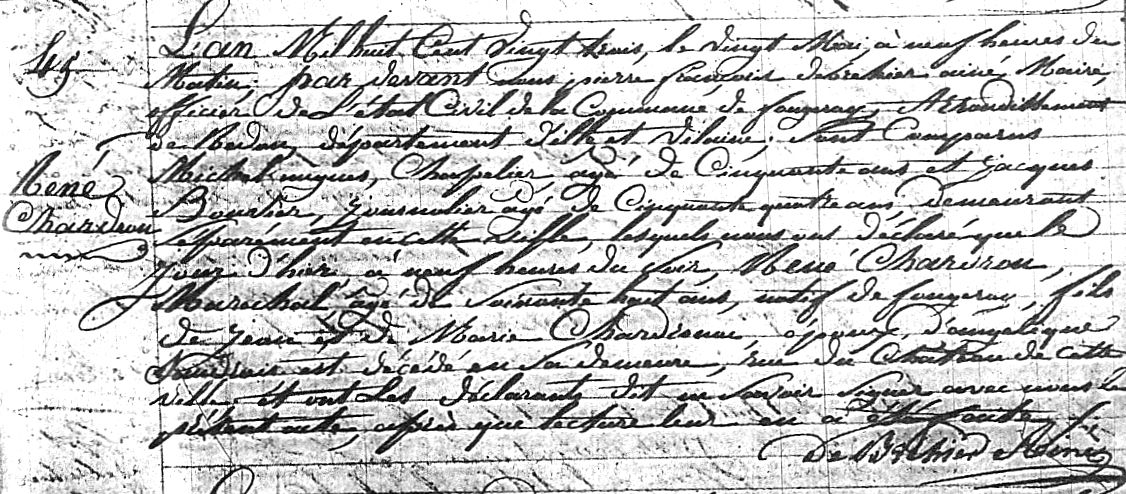 45
L'an Mil huit Cent Vingt trois, le Vingt Mai, à neuf heures du
Matin, par devant nous pierre françois debréhier ainé, Maire,
officier de L'état Civil de la Commune de fougeray, Arrondissement
de Redon, département d'ille et Vilaine, Sont Comparus
Michel, âgé de Cinquante ans et Jacques
Journalier âgé de Cinquante quatre ans demeurant
Séparément en cette Ville, lesquels nous ont déclaré que le
Jour d'hier à neuf heures du Soir, René Chardron,
Maréchal âgé de Soixante huit ans, natif de fougeray, fils
de Jean et de Marie époux d'angélique
est décédé en Sa demeure, rue du Château de cette
Ville et ont Les déclarants dit ne Savoir Signer avec nous le
présent acte, après que lecture leur en a été faite
De Bréhier Ainé
René
Chardron